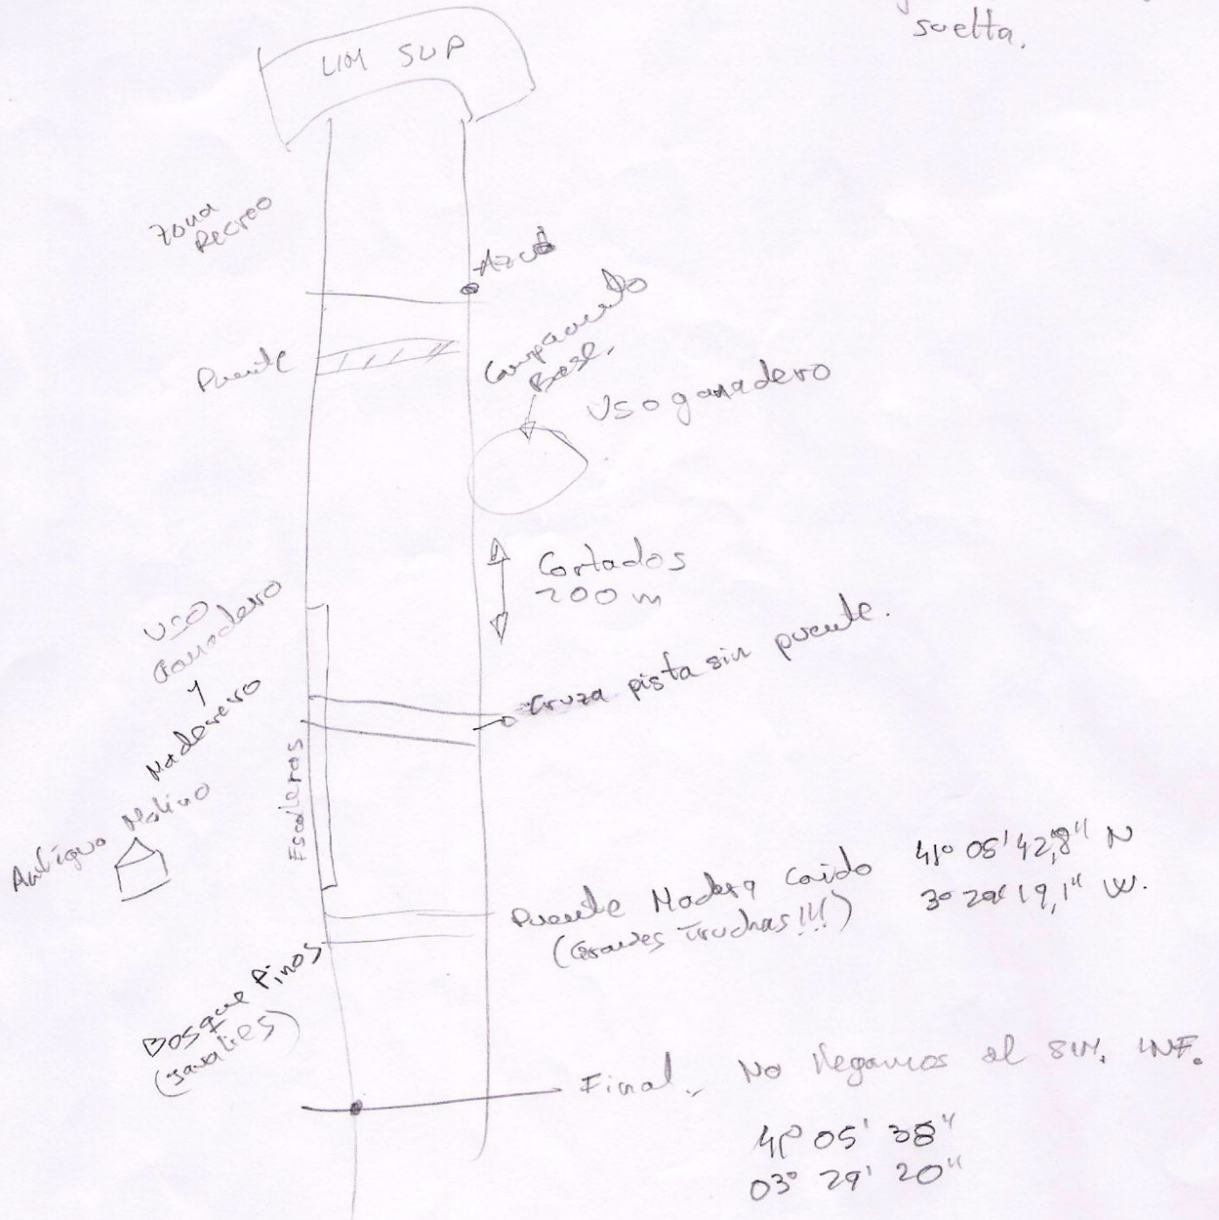 suelta.
LIM SUP
Zona
Recreo
Azud
Puente
Campamento
Base.
Uso ganadero
Cortados
200 m
USO
Ganadero
y
Maderero
Cruza pista sin puente.
Escaleras
Antiguo Molino
Puente Madera Caido
(Graves Truchas!!!)
41º 05' 42,8" N
3º 29' 19,1" W.
Bosque Pinos
(Javalies)
Final. No llegamos al LIM. INF.
41º 05' 38"
03º 29' 20"